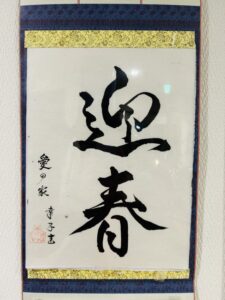 迎春
愛の家 幸子書